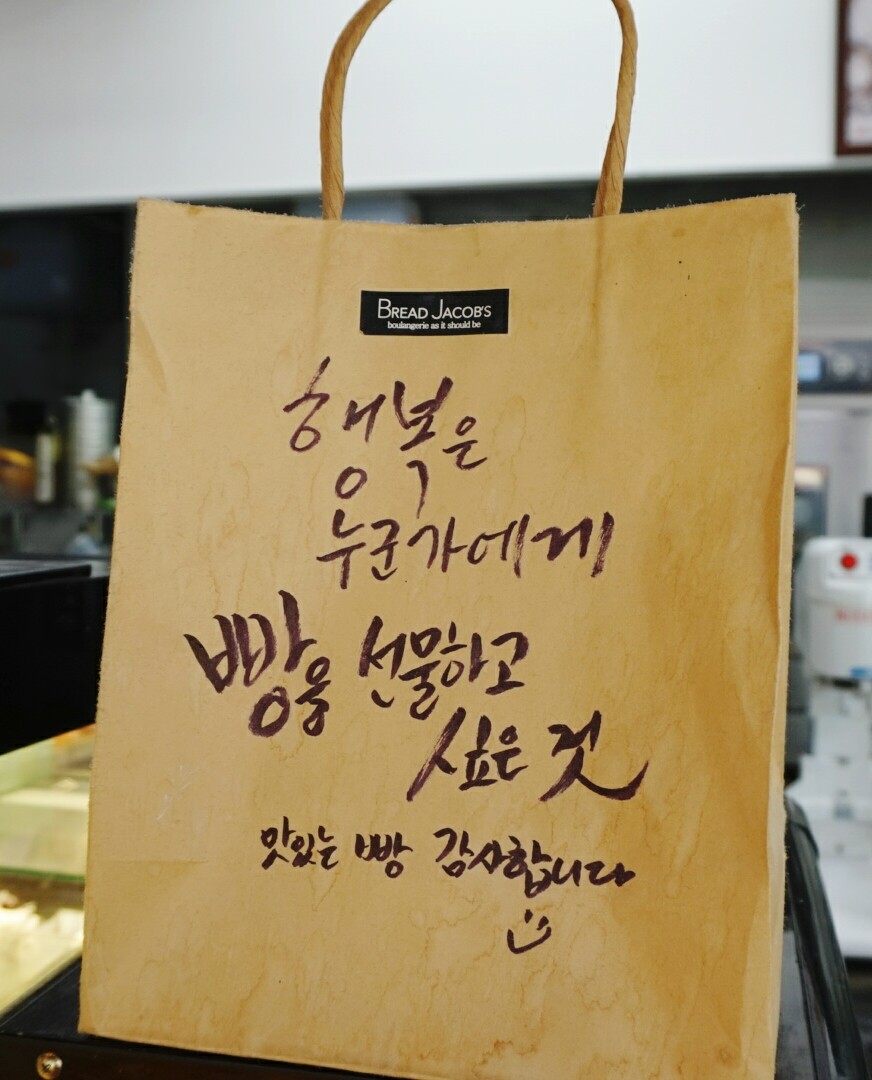 BREAD JACOB'S
boulangerie as it should be
행복은
누군가에게
빵을 선물하고
싶은 것
맛있는 빵 감사합니다